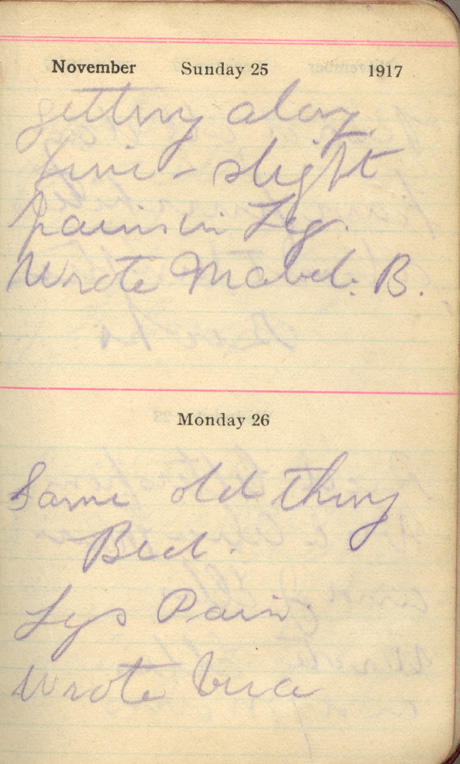 November Sunday 25 1917
getting along
fine - slight
pains in Leg.
Wrote Mabel. B.
Monday 26
Same old thing
Bed.
Legs Pain.
Wrote